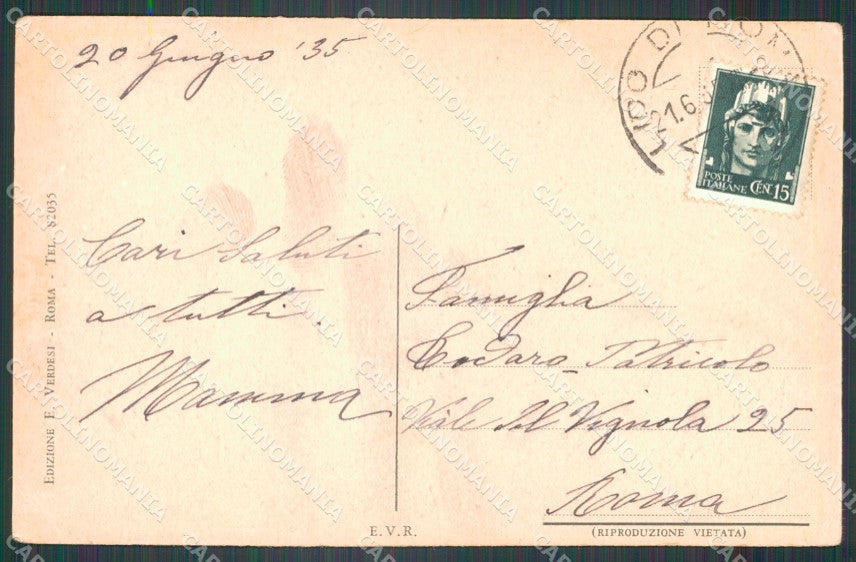 20 Giugno '35
LIDO DI ROMA
21.6.3
POSTE
ITALIANE
CENT 15
Cari Saluti
a tutti.
Mamma
Famiglia
Todaro-Patricolo
Viale del Vignola 25
Roma
(RIPRODUZIONE VIETATA)
E.V.R.
EDIZIONE E. VERDESI - ROMA - TEL. 82035
CARTOLINOMANIA